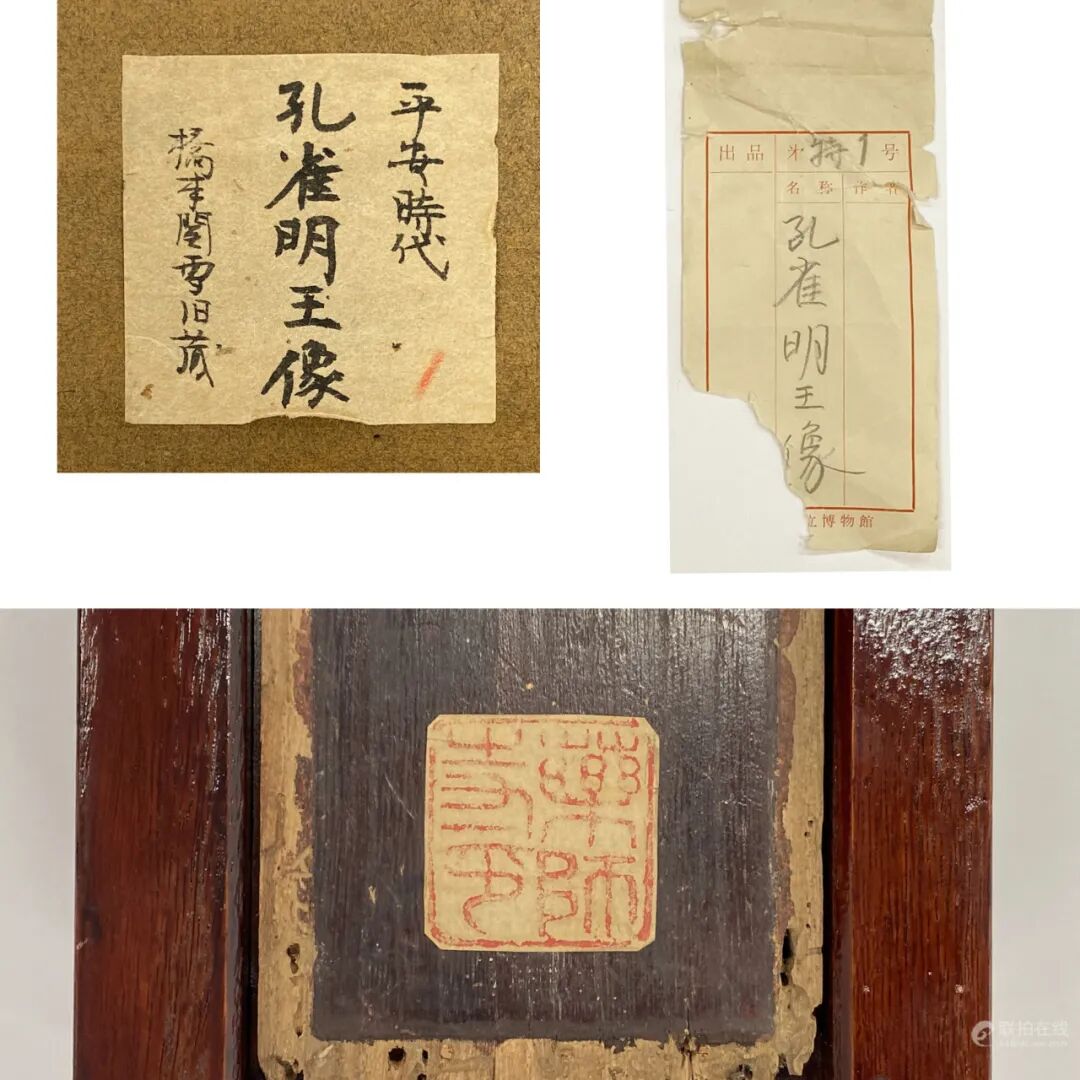 平安時代
孔雀明王像
橋本関雪旧蔵
出品 第 特1 号
名称 作者
孔雀明王像
立博物館
藥師
寺印
联拍在线